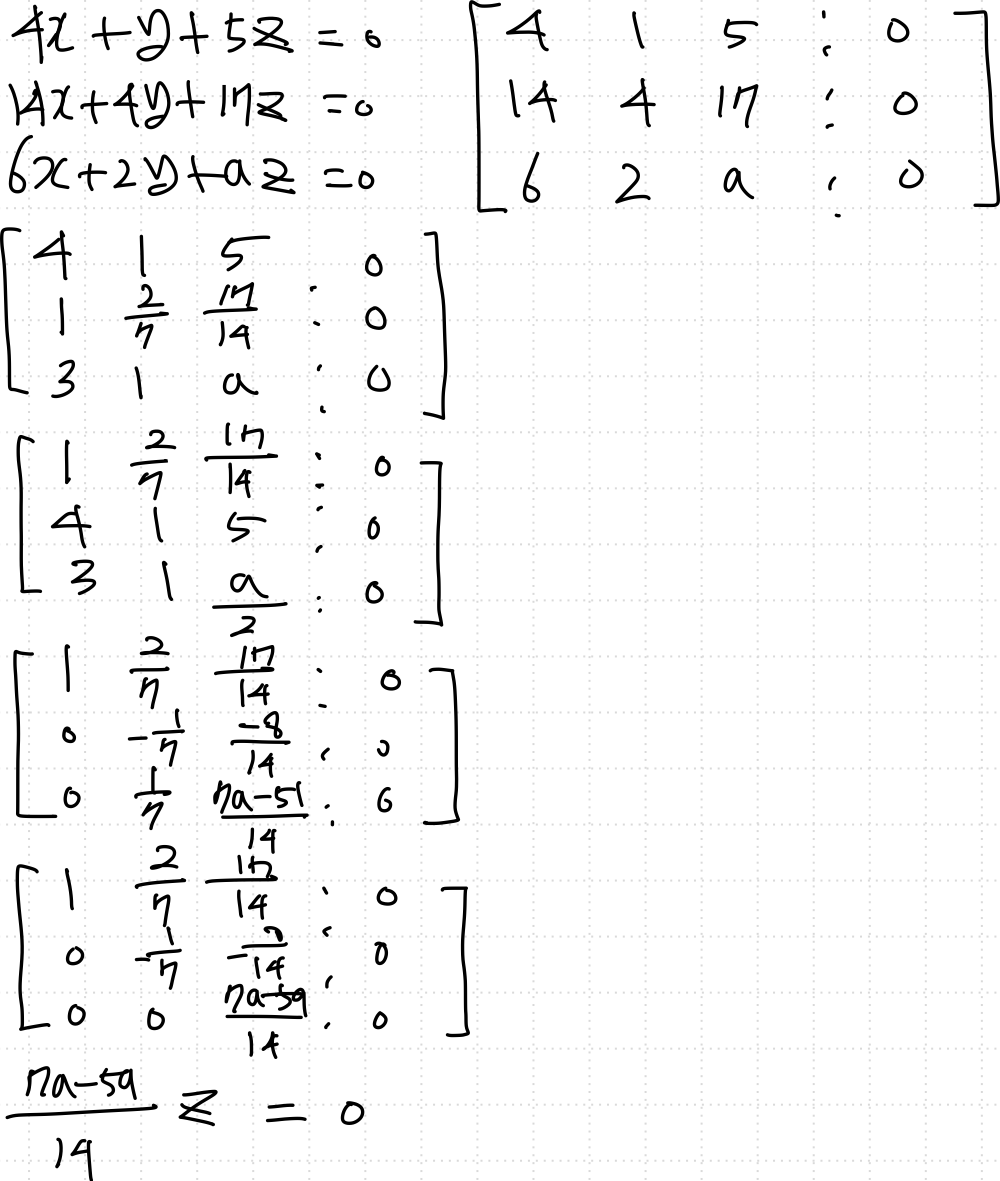 4x + y + 5z = 0
14x + 4y + 17z = 0
6x + 2y + az = 0
[ 4 1 5 : 0
14 4 17 : 0
6 2 a : 0 ]
[ 4 1 5 0
1 2/7 17/14 : 0
3 1 a : 0 ]
[ 1 2/7 17/14 : 0
4 1 5 : 0
3 1 a/2 : 0 ]
[ 1 2/7 17/14 : 0
0 -1/7 -8/14 : 0
0 1/7 7a-51/14 : 6 ]
[ 1 2/7 17/14 : 0
0 -1/7 : 0
0 0 7a-59/14 : 0 ]
7a-59/14 z = 0